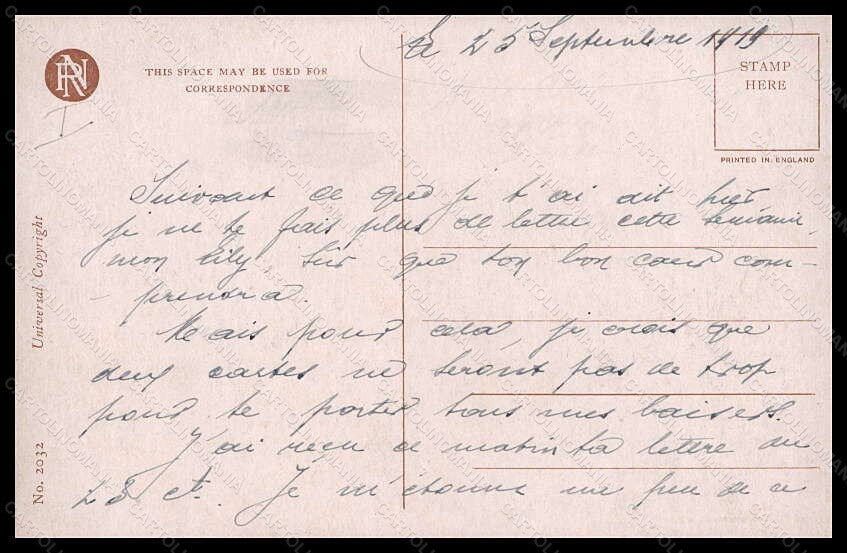 Le 25 Septembre 1919
RN
THIS SPACE MAY BE USED FOR
CORRESPONDENCE
STAMP
HERE
PRINTED IN ENGLAND
Universal Copyright
No. 2032
I
Suivant ce que je t'ai dit hier
je ne te fais plus de lettre cette semaine
mon Lily sûr que ton bon cœur com-
prendra.
Mais pour cela, je crois que
deux cartes ne seront pas de trop
pour te porter tous mes baisers.
J'ai reçu ce matin ta lettre du
23 ct. Je m'étonne un peu de ce
CARTOLINOMANIA